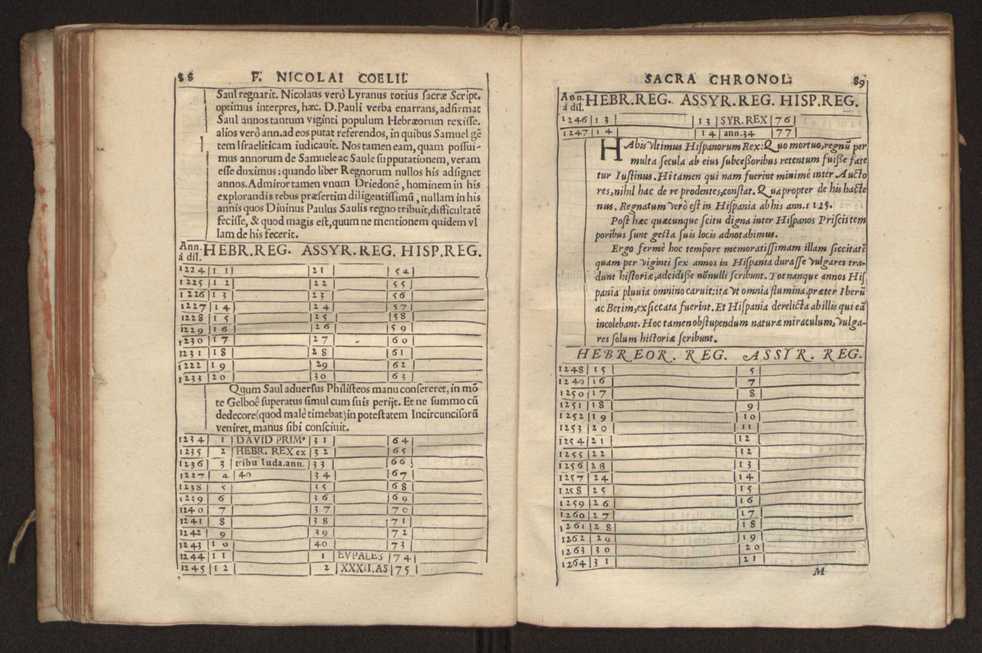 88 F. NICOLAI COELII
Saul regnarit. Nicolaus verò Lyranus totius sacræ Script.
optimus interpres, hæc. D. Pauli verba enarrans, adfirmat
Saul annos tantum viginti populum Hebræorum rexisse.
alios verò ann. ad eos putat referendos, in quibus Samuel gē
tem Israeliticam iudicauit. Nos tamen eam, quam possui-
mus annorum de Samuele ac Saule supputationem, veram
esse duximus: quando liber Regnorum nullos his adsignet
annos. Admiror tamen vnam Driedonē, hominem in his
explorandis rebus præsertim diligentissimū, nullam in his
annis quos Diuinus Paulus Saulis regno tribuit, difficultatē
fecisse, & quod magis est, quum ne mentionem quidem vl
lam de his fecerit.
Ann. á dil. HEBR. REG. ASSYR. REG. HISP. REG.
1224 | 11 | 21 | 54
1225 | 12 | 22 | 55
1226 | 13 | 23 | 56
1227 | 14 | 24 | 57
1228 | 15 | 25 | 58
1229 | 16 | 26 | 59
1230 | 17 | 27 | 60
1231 | 18 | 28 | 61
1222 | 19 | 29 | 62
1233 | 20 | 30 | 63
Quum Saul aduersus Philisteos manu consereret, in mō
te Gelboê superatus simul cum suis perijt. Et ne summo cū
dedecore (quod malè timebat) in potestatem Incircuncisorū
veniret, manus sibi consciuit.
1234 | 1 | DAVID PRIM9 | 31 | 64
1235 | 2 | HEBR. REX ex | 32 | 65
1236 | 3 | tribu Iuda. ann. | 33 | 66
1227 | 4 | 40 | 34 | 67
1238 | 5 | 15 | 68
1239 | 6 | 36 | 69
1240 | 7 | 37 | 70
1241 | 8 | 38 | 71
1242 | 9 | 39 | 72
1243 | 10 | 40 | 73
1244 | 11 | 1 | EVPALES | 74
1245 | 12 | 2 | XXXII. AS | 75
SACRA CHRONOL: 89
Ann. á dil. HEBR. REG. ASSYR. REG. HISP. REG.
1246 | 13 | 13 | SYR. REX | 76
1247 | 14 | 14 | ann. 34 | 77
HAbis vltimus Hispanorum Rex: Quo mortuo, regnū per
multa secula ab eius subcessoribus retentum fuisse fate
tur Iustinus. Hi tamen qui nam fuerint minimè inter Aucto
res, nihil hac de re prodentes, constat. Quapropter de his hactē
nus. Regnatum verò est in Hispania ab his ann. 1125.
Post hæc quæcunque scitu digna inter Hispanos Priscis tem
poribus sunt gesta suis locis adnotabimus.
Ergo fermè hoc tempore memoratissimam illam siccitatē
quam per viginti sex annos in Hispania durasse vulgares tra-
dunt historiæ, adcidisse nōnulli scribunt. Tot nanque annos His
pania pluuia omnino caruit: ita vt omnia flumina, præter Iberū
ac Betim, exsiccata fuerint. Et Hispania derelicta ab illis qui eā
incolebant. Hoc tamen obstupendum naturæ miraculum, vulga-
res solum historiæ scribunt.
HEBREOR. REG. ASSYR. REG.
1248 | 15 | 5
1249 | 16 | 7
1250 | 17 | 8
1251 | 18 | 9
1252 | 19 | 10
1253 | 20 | 11
1254 | 21 | 12
1255 | 22 | 12
1256 | 28 | 13
1257 | 24 | 14
1258 | 25 | 15
1259 | 26 | 16
1260 | 27 | 17
1261 | 28 | 18
1262 | 29 | 19
1263 | 30 | 20
1264 | 31 | 21
M